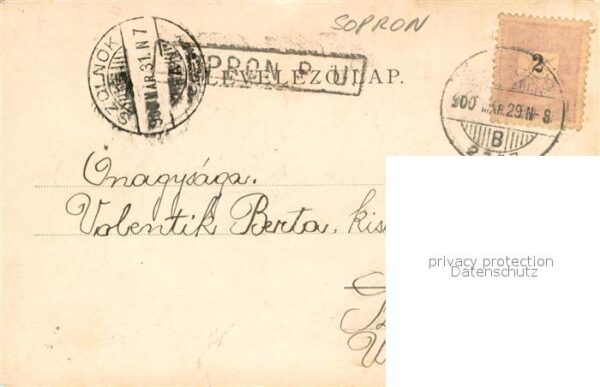 SOPRON
SZOLNOK
900 MAR. 31. N 7
PRON P. U
LEVELEZŐ-LAP.
2
900 MAR. 29. N
8
B
Önagysága.
Valentik Berta. kis
privacy protection
Datenschutz